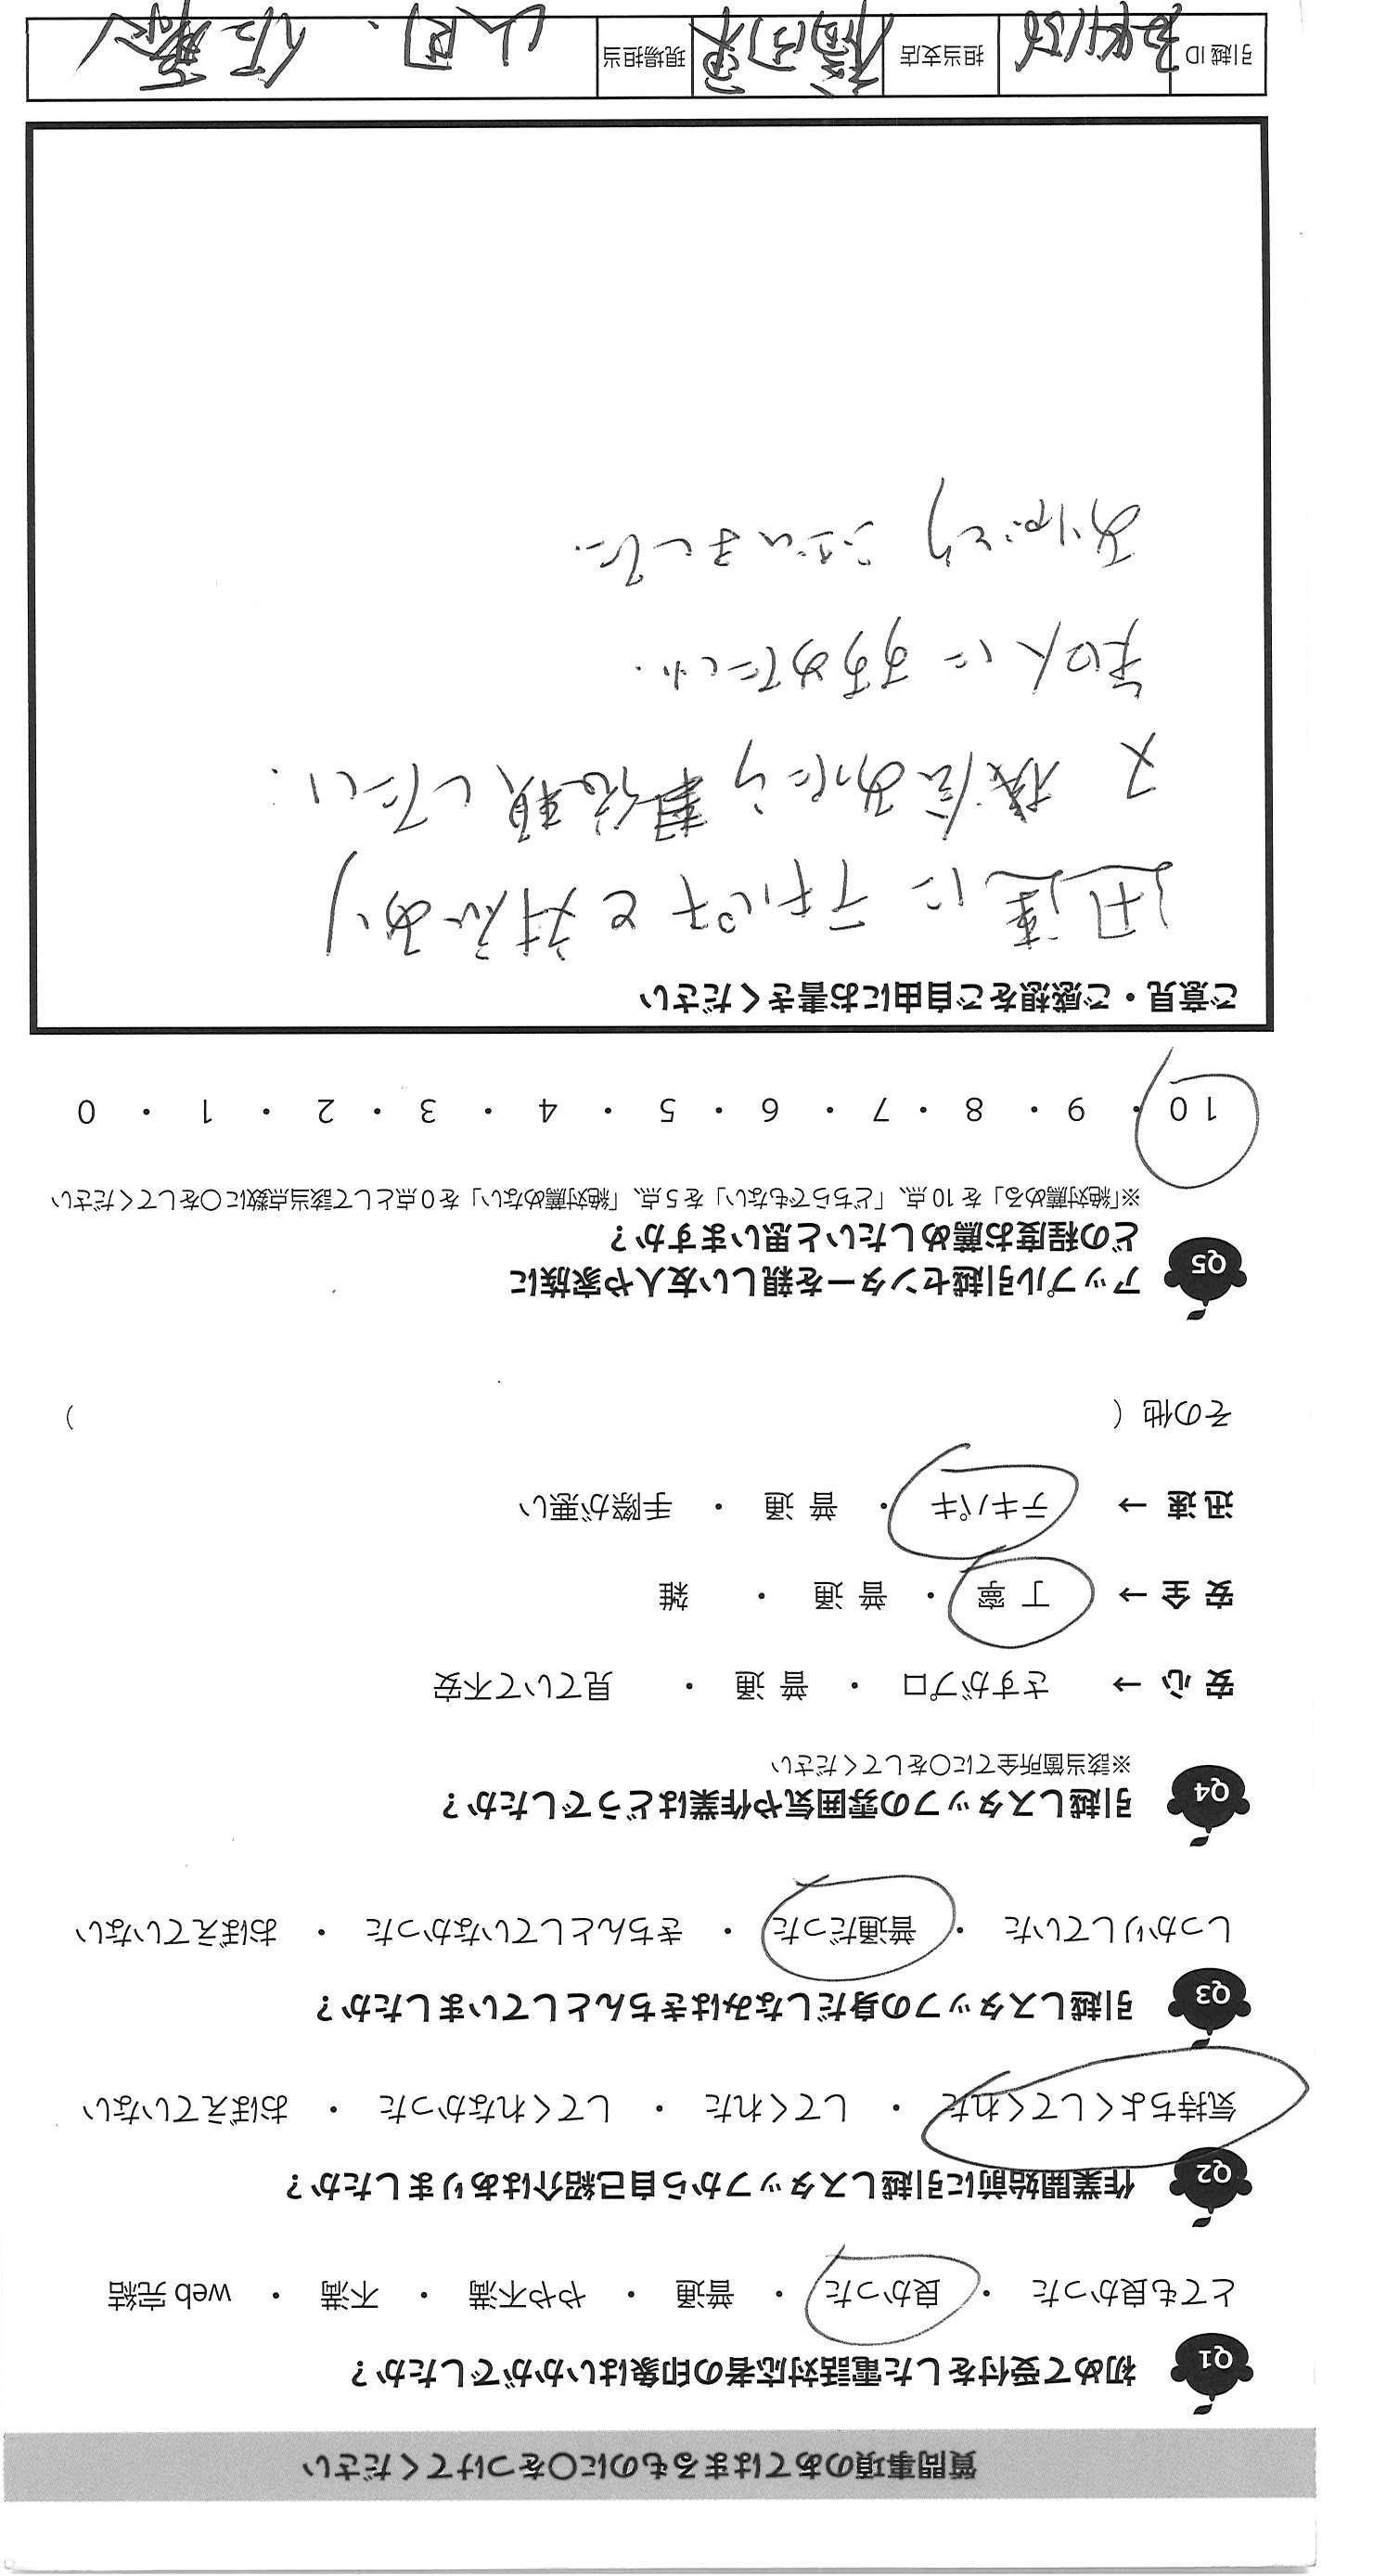 質問事項のあてはまるものに○をつけてください
Q1 初めて受付をした電話対応者の印象はいかがでしたか？
とても良かった ・ 良かった ・ 普通 ・ やや不満 ・ 不満 ・ web 完結
Q2 作業開始前に引越しスタッフから自己紹介はありましたか？
気持ちよくしてくれた ・ してくれた ・ してくれなかった ・ おぼえていない
Q3 引越しスタッフの身だしなみはきちんとしていましたか？
しっかりしていた ・ 普通だった ・ きちんとしていなかった ・ おぼえていない
Q4 引越しスタッフの雰囲気や作業はどうでしたか？
※該当箇所全てに○をしてください
安 心 → さすがプロ ・ 普 通 ・ 見ていて不安
安 全 → 丁 寧 ・ 普 通 ・ 雑
迅 速 → テキパキ ・ 普 通 ・ 手際が悪い
その他 ( )
Q5 アップル引越センターを親しい友人や家族に
どの程度お薦めしたいと思いますか？
※「絶対薦める」を 10 点、「どちらでもない」を 5 点、「絶対薦めない」を 0 点として該当点数に○をしてください
10 ・ 9 ・ 8 ・ 7 ・ 6 ・ 5 ・ 4 ・ 3 ・ 2 ・ 1 ・ 0
ご意見・ご感想をご自由にお書きください
迅速に テキパキと対応あり
又 機会あったら 是非依頼したい.
知人に すすめたい.
ありがとう ございました.
引越 ID 担当支店 現場担当